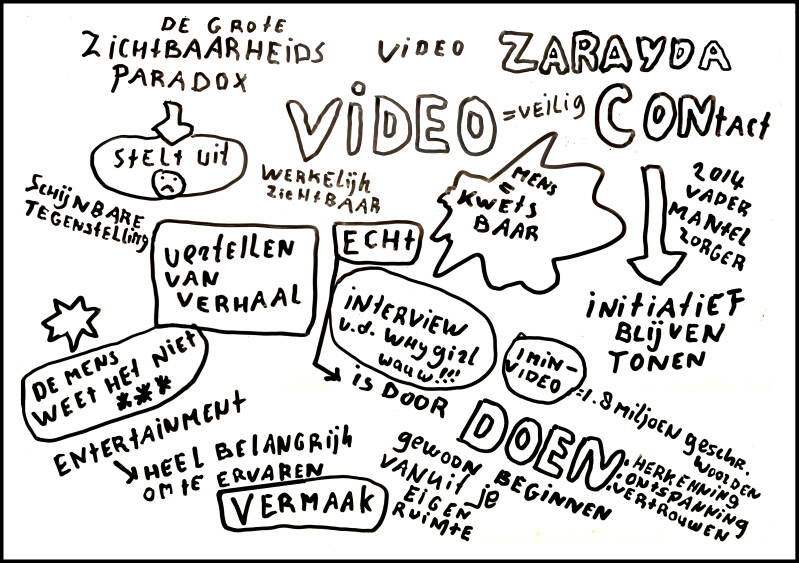 DE GROTE
ZICHTBAARHEIDS
PARADOX
VIDEO
ZARAYDA
VIDEO
=VEILIG
CONtact
StELT Uit
WERKELIJK
ZICHTBAAR
MENS
=
KWETS
BAAR
2014
VADER
MANTEL
ZORGER
SCHIJNBARE
TEGENSTELLING
VERTELLEN
VAN
VERHAAL
ECHT
INTERVIEW
v.d. WHYGIRL
WAUW!!!
INITIATIEF
BLIJVEN
TONEN
DE MENS
WEET HET NIET
***
1 MIN-
VIDEO
=1.8 MILJOEN GESCHR.
WOORDEN
IS DOOR
DOEN
: HERKENNING
: ONTSPANNING
: VERTROUWEN
ENTERTAINMENT
HEEL BELANGRIJK
OM TE ERVAREN
VERMAAK
GEWOON BEGINNEN
VANUIT JE
EIGEN
RUIMTE